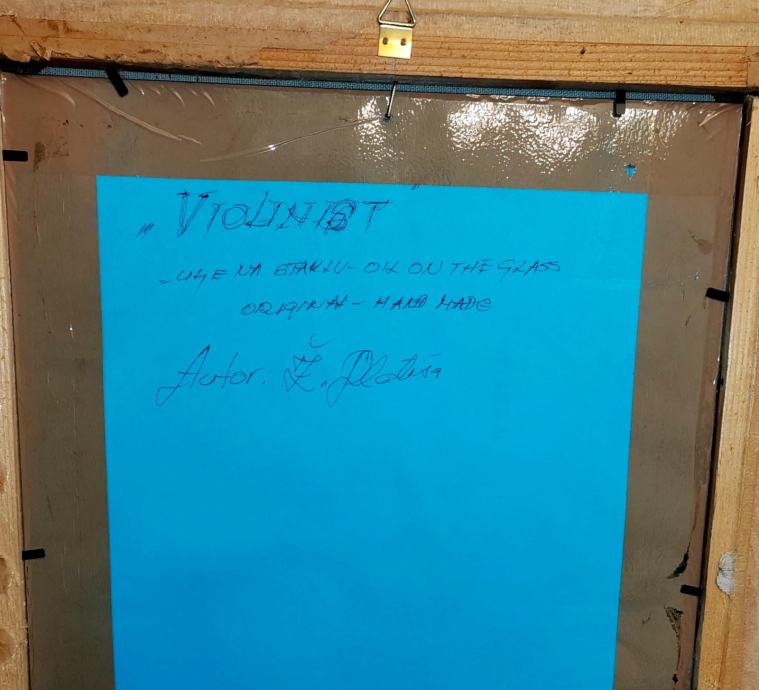 „VIOLINIST"
-ULJE NA STAKLU- OIL ON THE GLASS
ORIGINAL - HAND MADE
Autor: Ž. Platiša